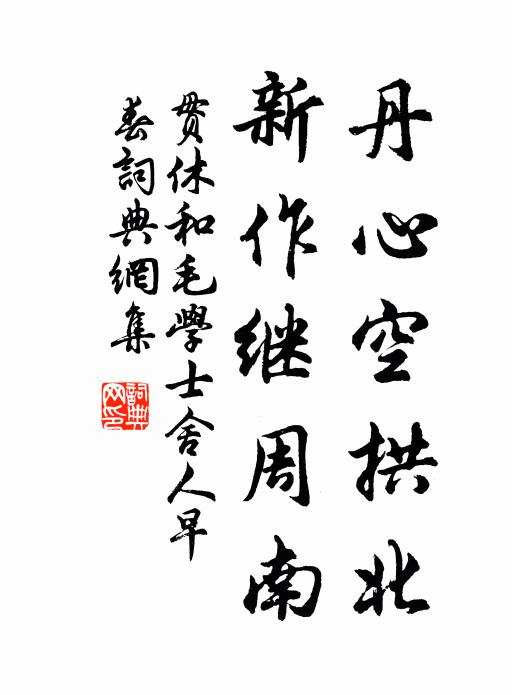 丹心空拱北
新作继周南
贯休和毛學士舍人早
春詞典網集
詞典
网印